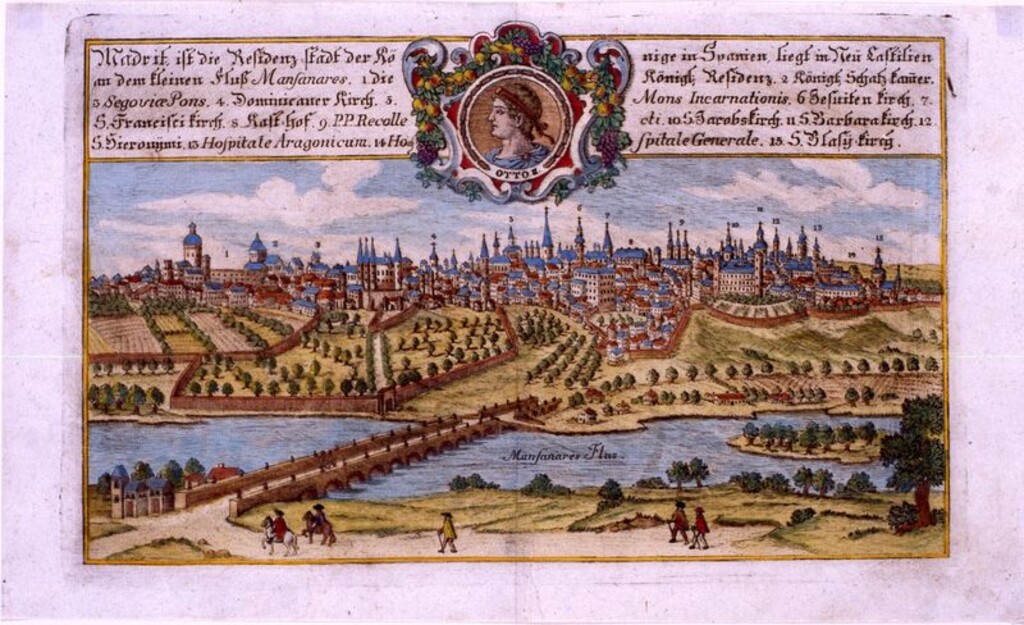 Madrit, ist die Residenz stadt der Kö nige in Spanien, liegt in Neü Castilien
an dem kleinen Fluß Mansanares. 1 die Königl. Residenz. 2 Königl. Schatz kam̄er.
3 Segoviæ Pons. 4. Dominicaner Kirch. 5. Mons Incarnationis. 6 Jesuiten kirch. 7.
S. Francisci kirch. 8 Kast hof. 9. P.P. Recolle cti. 10 S. Jacobskirch. 11 S. Barbarakirch. 12.
S. Hieronÿmi. 13 Hospitale Aragonicum. 14 Ho, spitale Generale. 15. S. Blasÿ-kirch.
OTTO II
1 2 3 4 5 6 7 8 9 10 11 12 13 14 15
Mansanares Flus.